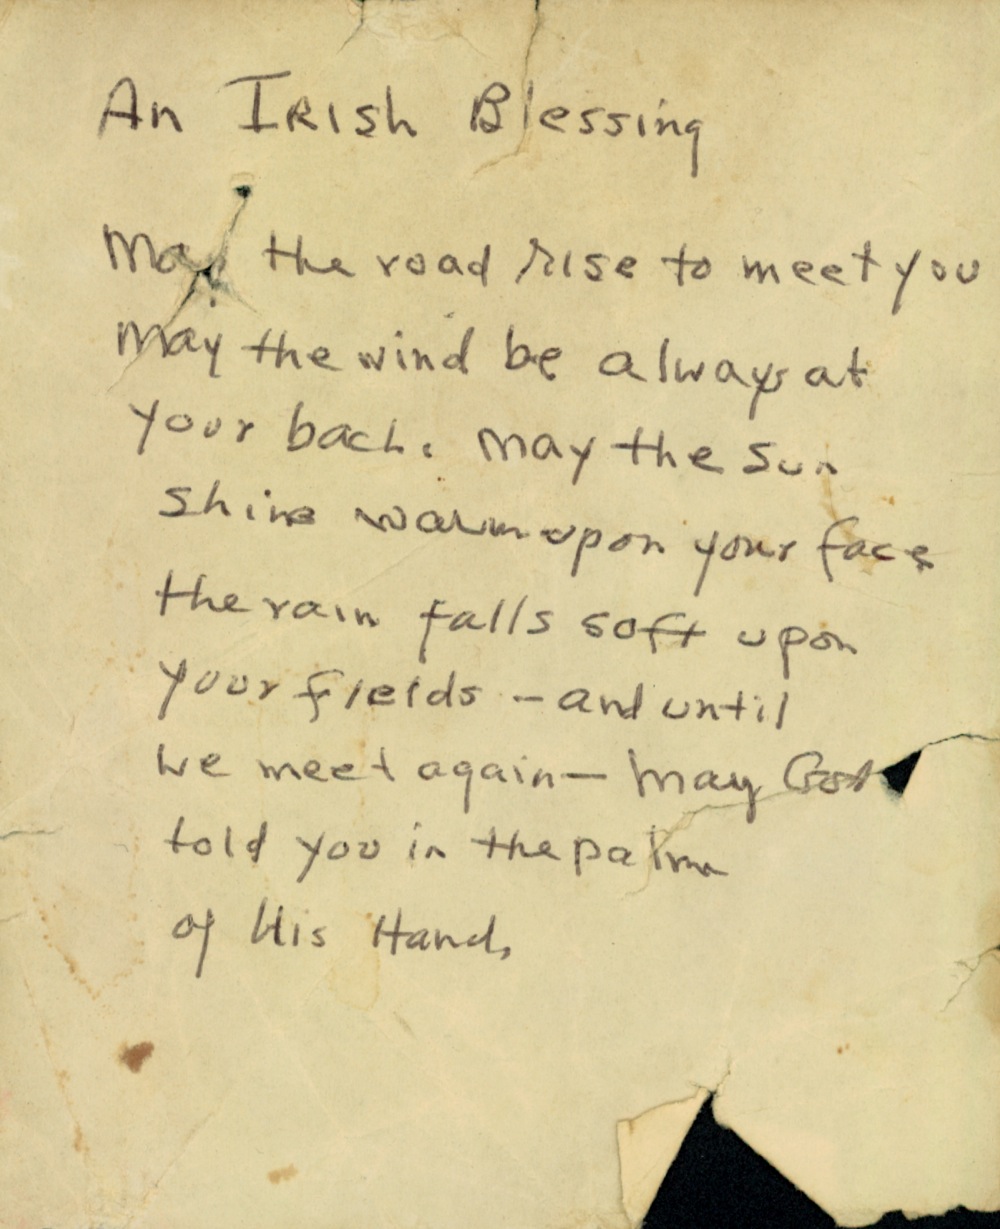 An Irish Blessing
May the road rise to meet you
May the wind be always at
your back. May the sun
shine warm upon your face
the rain falls soft upon
your fields - and until
we meet again - may God
told you in the palm
of His Hand.